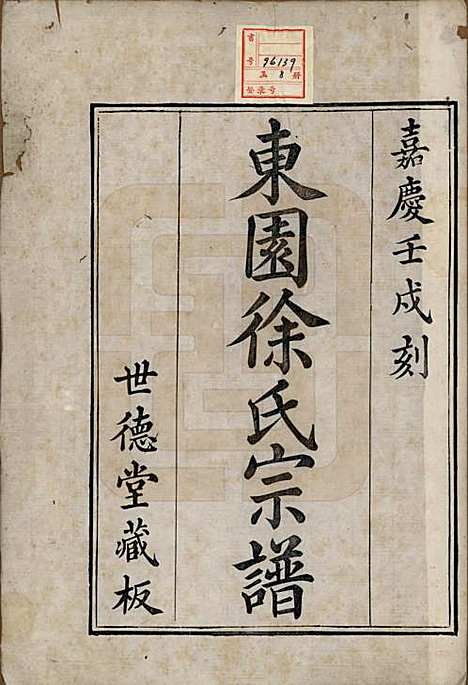 書號 96139
共 8 冊
登录号
嘉慶壬戌刻
東園徐氏宗譜
世德堂藏板